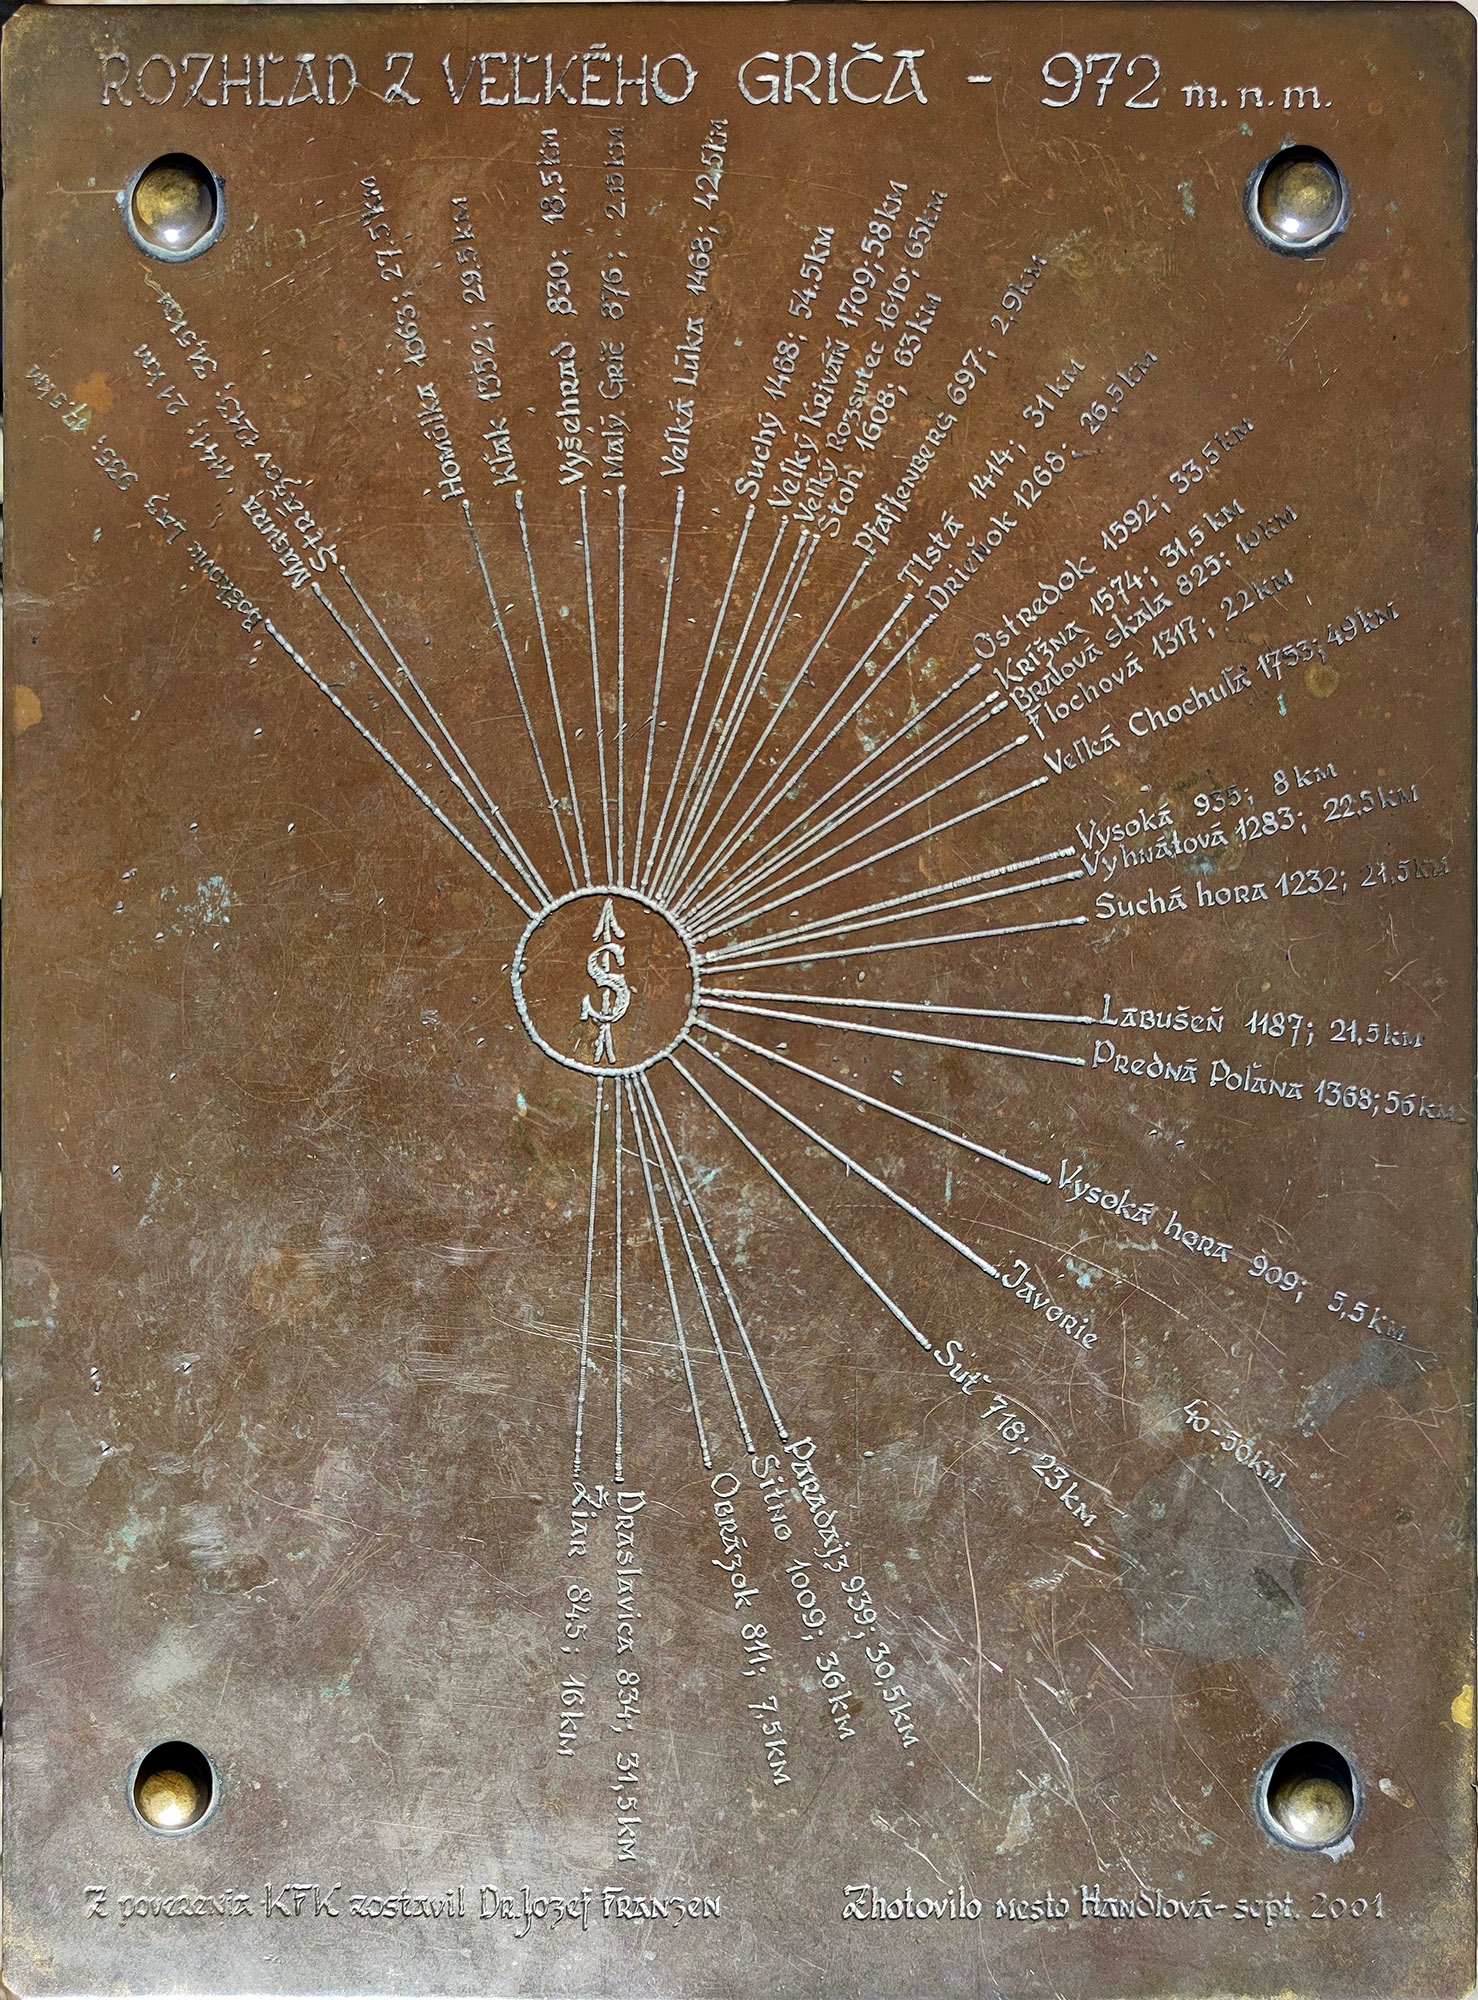 ROZHĽAD Z VEĽKÉHO GRIČA - 972 m.n.m.
Boškovie Laz 935; 17,5 km
Magura 1141; 21 km
Strážov 1213;
Homôlka 1063; 27,5 km
Kľak 1352; 29.5 km
Vyšehrad 830; 18.5 km
Malý Grič 876; 2.15 km
Veľká Lúka 1468; 42.5 km
Suchý 1468; 54.5 km
Veľký Kriváň 1709; 58 km
Veľký Rozsutec 1610; 65 km
Stoh 1608; 63 km
Pfaffenberg 697; 2,9 km
Tlstá 1414; 31 km
Drieňok 1268; 26,5 km
Ostredok 1592; 33,5 km
Krížna 1574; 31,5 km
Bralová skala 825; 10 km
Flochová 1317; 22 km
Veľká Chochuľa 1753; 49 km
Vysoká 935; 8 km
Vyhnátová 1283; 22,5 km
Suchá hora 1232; 21,5 km
S
Labušeň 1187; 21,5 km
Predná Poľana 1368; 56 km
Vysoká hora 909; 5,5 km
Javorie 40-50 km
Suť 718; 23 km
Paradajz 939; 30,5 km
Sitno 1009; 36 km
Obrázok 811; 7,5 km
Draslavica 834; 31,5 km
Žiar 845; 16 km
Z poverenia KFK zostavil Dr. Jozef Franzen
Zhotovilo mesto Handlová - sept. 2001